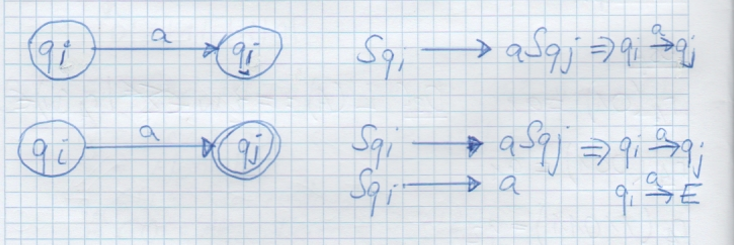 qi a qj Sqi → aSqj ⇒ qi a→ qj
qi a qj Sqi → aSqj ⇒ qi a→ qj
Sqi → a qi a→ E